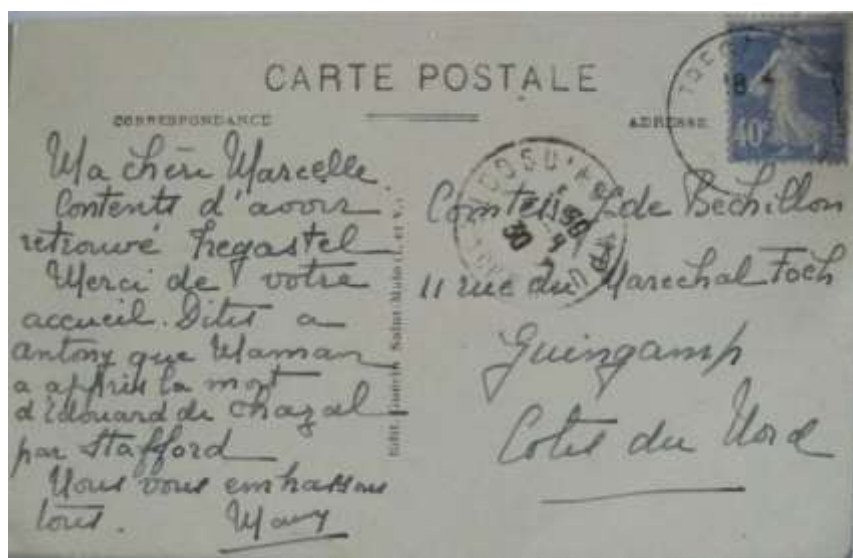 CARTE POSTALE
CORRESPONDANCE
ADRESSE
Ma chère Marcelle
Contents d'avoir
retrouvé Tregastel
Merci de votre
accueil. Dites a
Antony que Maman
a appris la mort
d'Edouard de Chazal
par Stafford
Nous vous embrassons
tous.
40c
de Bechillon
11 rue du Marechal Foch
Guingamp
Cotes du Nord